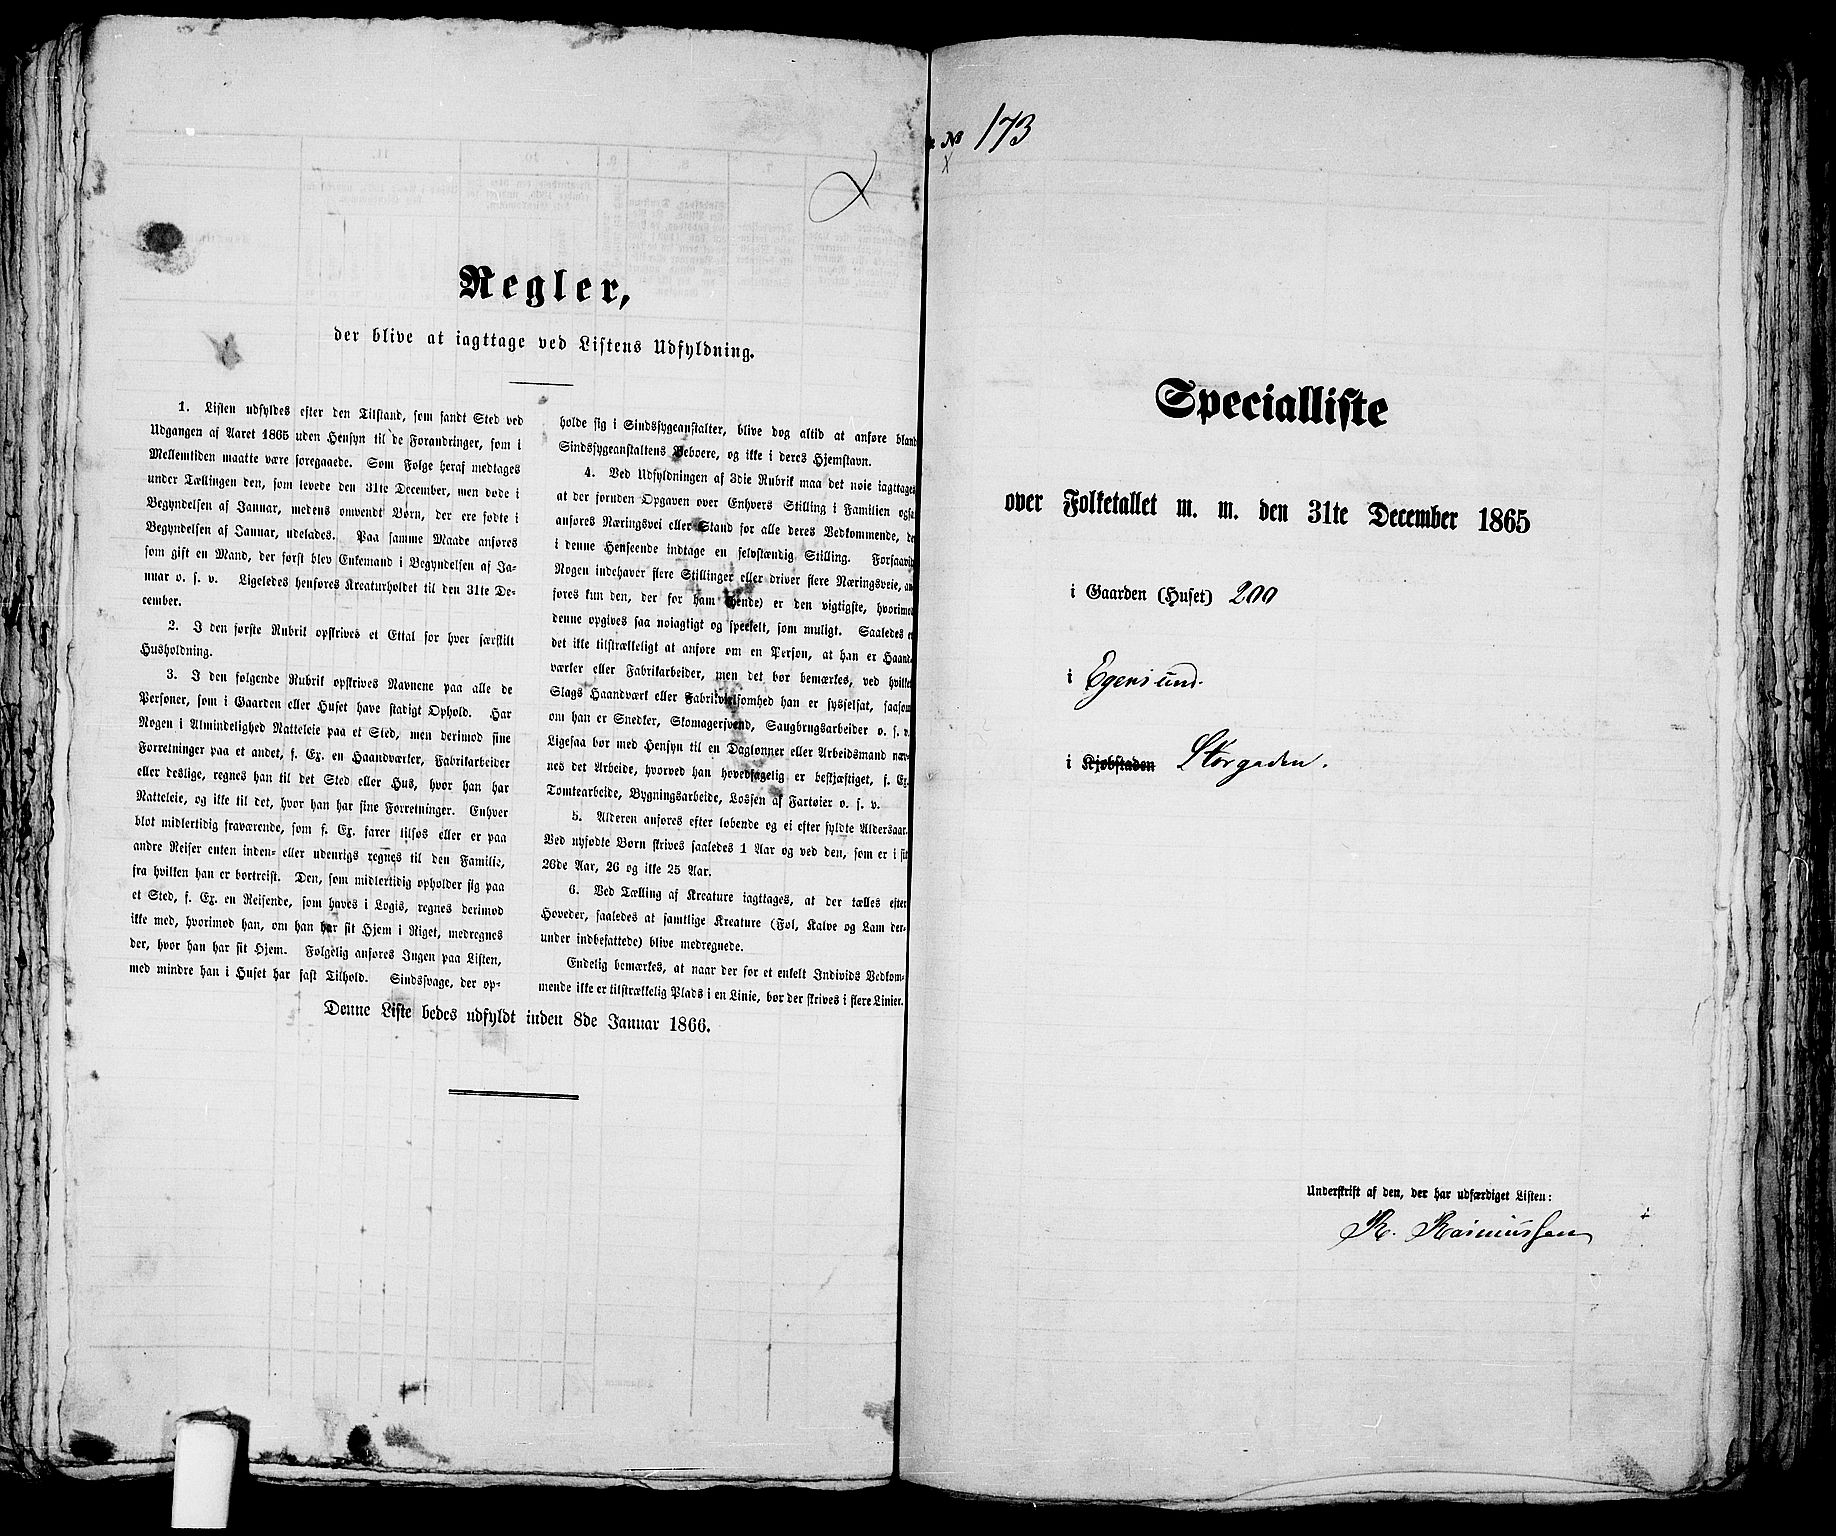 Regler,
der blive at iagttage ved Listens Udfyldning.
1. Listen udfyldes efter den Tilstand, som fandt Sted ved
Udgangen af Aaret 1865 uden Hensyn til de Forandringer, som i
Mellemtiden maatte være foregaaede. Som Følge heraf medtages
under Tællingen den, som levede den 31te December, men døde i
Begyndelsen af Januar, medens omvendt Børn, der ere fødte i
Begyndelsen af Januar, udelades. Paa samme Maade anføres
som gift en Mand, der først blev Enkemand i Begyndelsen af Ja-
nuar o. s. v. Ligeledes henføres Kreaturholdet til den 31te De-
cember.
2. I den første Rubrik opskrives et Ettal for hver særskilt
Husholdning.
3. I den følgende Rubrik opskrives Navnene paa alle de
Personer, som i Gaarden eller Huset have stadigt Ophold. Har
Nogen i Almindelighed Natteleie paa et Sted, men derimod sine
Forretninger paa et andet, f. Ex. en Haandværker, Fabrikarbeider
eller deslige, regnes han til det Sted eller Hus, hvor han har
Natteleie, og ikke til det, hvor han har sine Forretninger. Enhver
blot midlertidig fraværende, som f. Ex. farer tilsøs eller er paa
andre Reiser enten inden- eller udenrigs regnes til den Familie,
fra hvilken han er bortreist. Den, som midlertidig opholder sig paa
et Sted, f. Ex. en Reisende, som haves i Logis, regnes derimod
ikke med, hvorimod han, om han har sit Hjem i Riget, medregnes
der, hvor han har sit Hjem. Følgelig anføres Ingen paa Listen,
med mindre han i Huset har fast Tilhold. Sindssvage, der op-
holde sig i Sindssygeanstalter, blive dog altid at anføre bland
Sindssygeanstaltens Beboere, og ikke i deres Hjemstavn.
4. Ved Udfyldningen af 3die Rubrik maa det nøie iagttages
at der foruden Opgaven over Enhvers Stilling i Familien ogsa
anføres Næringsvei eller Stand for alle deres Vedkommende, de
i denne Henseende indtage en selvstændig Stilling. Forsaavidt
Nogen indehaver flere Stillinger eller driver flere Næringsveie, an
føres kun den, der for ham (hende) er den vigtigste, hvorimod
denne opgives saa nøiagtigt og specielt, som muligt. Saaledes e
det ikke tilstrækkeligt at anføre om en Person, at han er Haand
værker eller Fabrikarbeider, men det bør bemærkes, ved hvilket
Slags Haandværk eller Fabrikvirksomhed han er sysselsat, saasom
om han er Snedker, Skomagersvend, Saugbrugsarbeider o. s. v.
Ligesaa bør med Hensyn til en Daglønner eller Arbeidsmand næv-
nes det Arbeide, hvorved han hovedsagelig er beskjæftiget, f. Ex.
Tomtearbeide, Bygningsarbeide, Lossen af Fartøier o. s. v.
5. Alderen anføres efter løbende og ei efter fyldte Aldersaar.
Ved nyfødte Børn skrives saaledes 1 Aar og ved den, som er i sit
26de Aar, 26 og ikke 25 Aar.
6. Ved Tælling af Kreature iagttages, at der tælles efter
Hoveder, saaledes at samtlige Kreature (Føl, Kalve og Lam der-
under indbefattede) blive medregnede.
Endelig bemærkes, at naar der for et enkelt Individs Vedkom-
mende ikke er tilstrækkelig Plads i en Linie, bør der skrives i flere Linier.
Denne Liste bedes udfyldt inden 8de Januar 1866.
№ 173
Specialliste
over Folketallet m. m. den 31te December 1865
i Gaarden (Huset) 200
i Egersund.
i Kjøbstaden Storgaden.
Underskrift af den, der har udfærdiget Listen:
R. Rasmussen